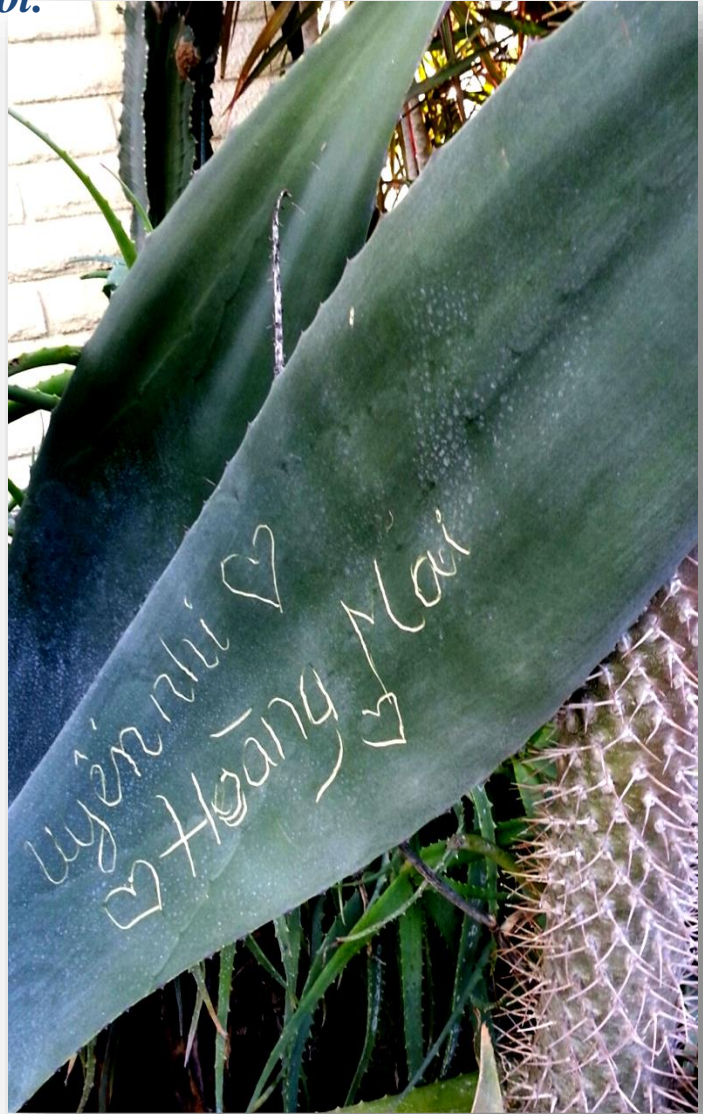 ol.
uyên nhi ♡
♡ Hoāng Mai ♡